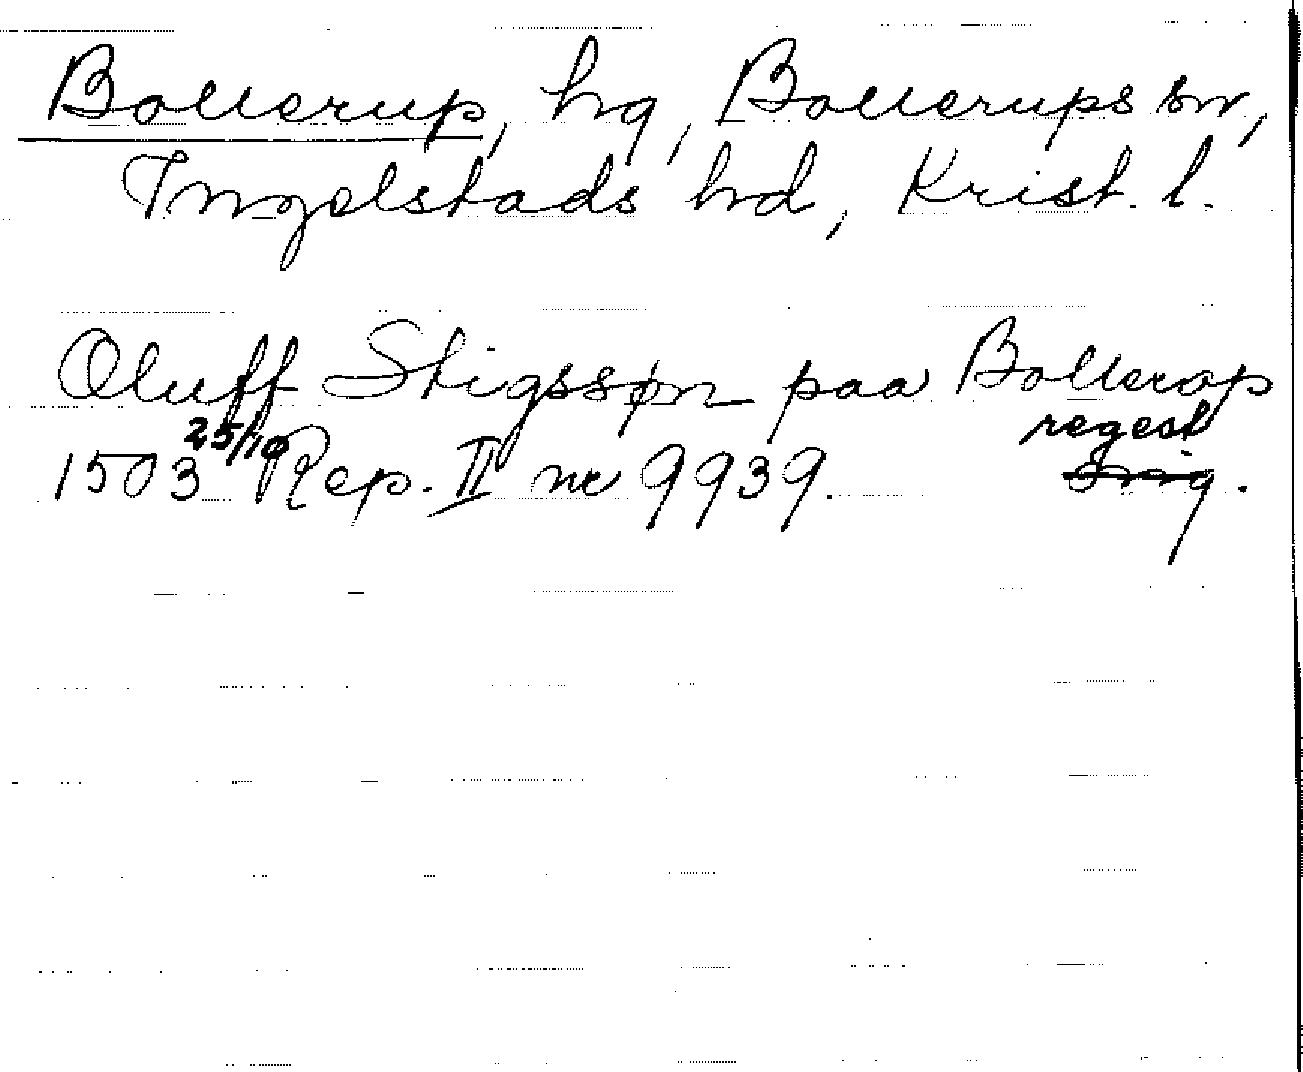 Bollerup, hg, Bollerups sn,
Ingelstads hd, Krist. l.
Oluff Stigssøn paa Bollerop
1503 25/10 Rep. II nr 9939. regest
orig.